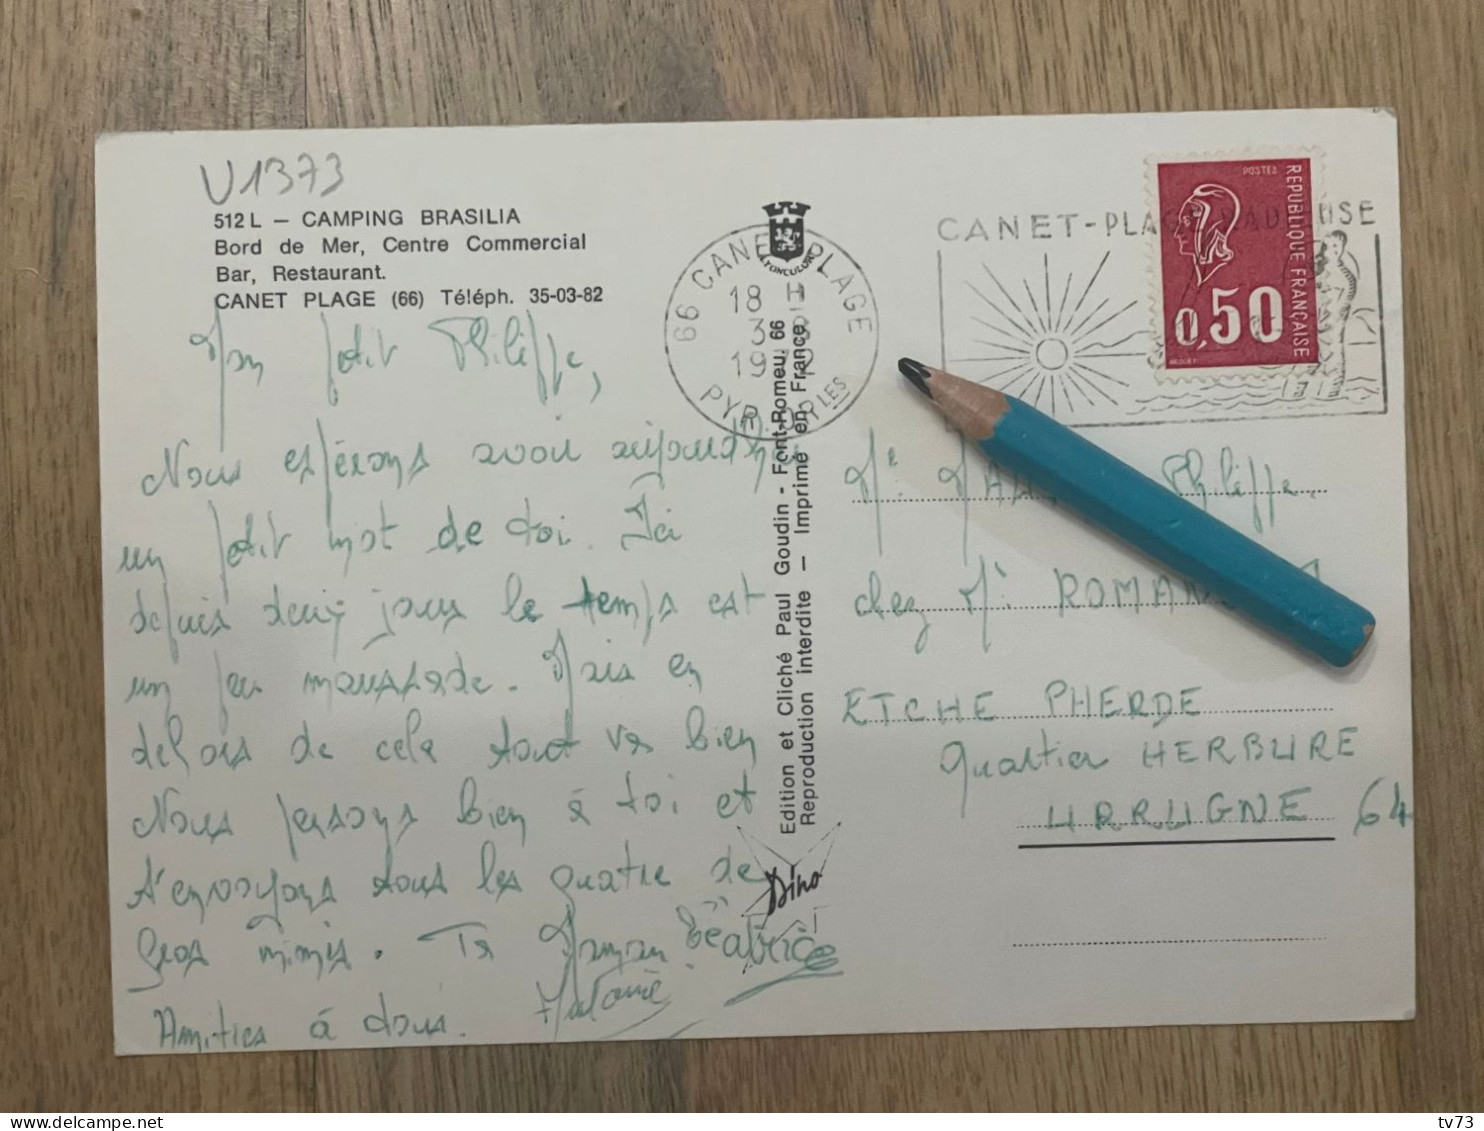 V1373
512 L — CAMPING BRASILIA
Bord de Mer, Centre Commercial
Bar, Restaurant.
CANET PLAGE (66) Téléph. 35-03-82
Mon petit Philippe,
Nous espérons avoir aujourd'hui
un petit mot de toi. Ici
depuis deux jours le temps est
un peu maussade. Mais en
dehors de cela tout va bien
Nous pensons bien à toi et
t'envoyons tous les quatre de
gros mimis. Ta Maman Béatrice
Mélanie
Amitiés à tous.
LYONCOLOR
66 CANET PLAGE
18 H
3
19
PYR. ORLES
Edition et Cliché Paul Goudin - Font-Romeu, 66
Reproduction interdite — Imprimé en France
Dino
CANET-PLAGE
POSTES
REPUBLIQUE FRANÇAISE
0,50
BEQUET
Mr Philippe.
chez Mr ROMAN
ETCHE PHERDE
Quartier HERBURE
URRUGNE 64
delcampe.net
tv73